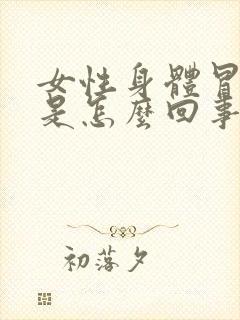 女性身體冒
是怎麼回事
初落夕